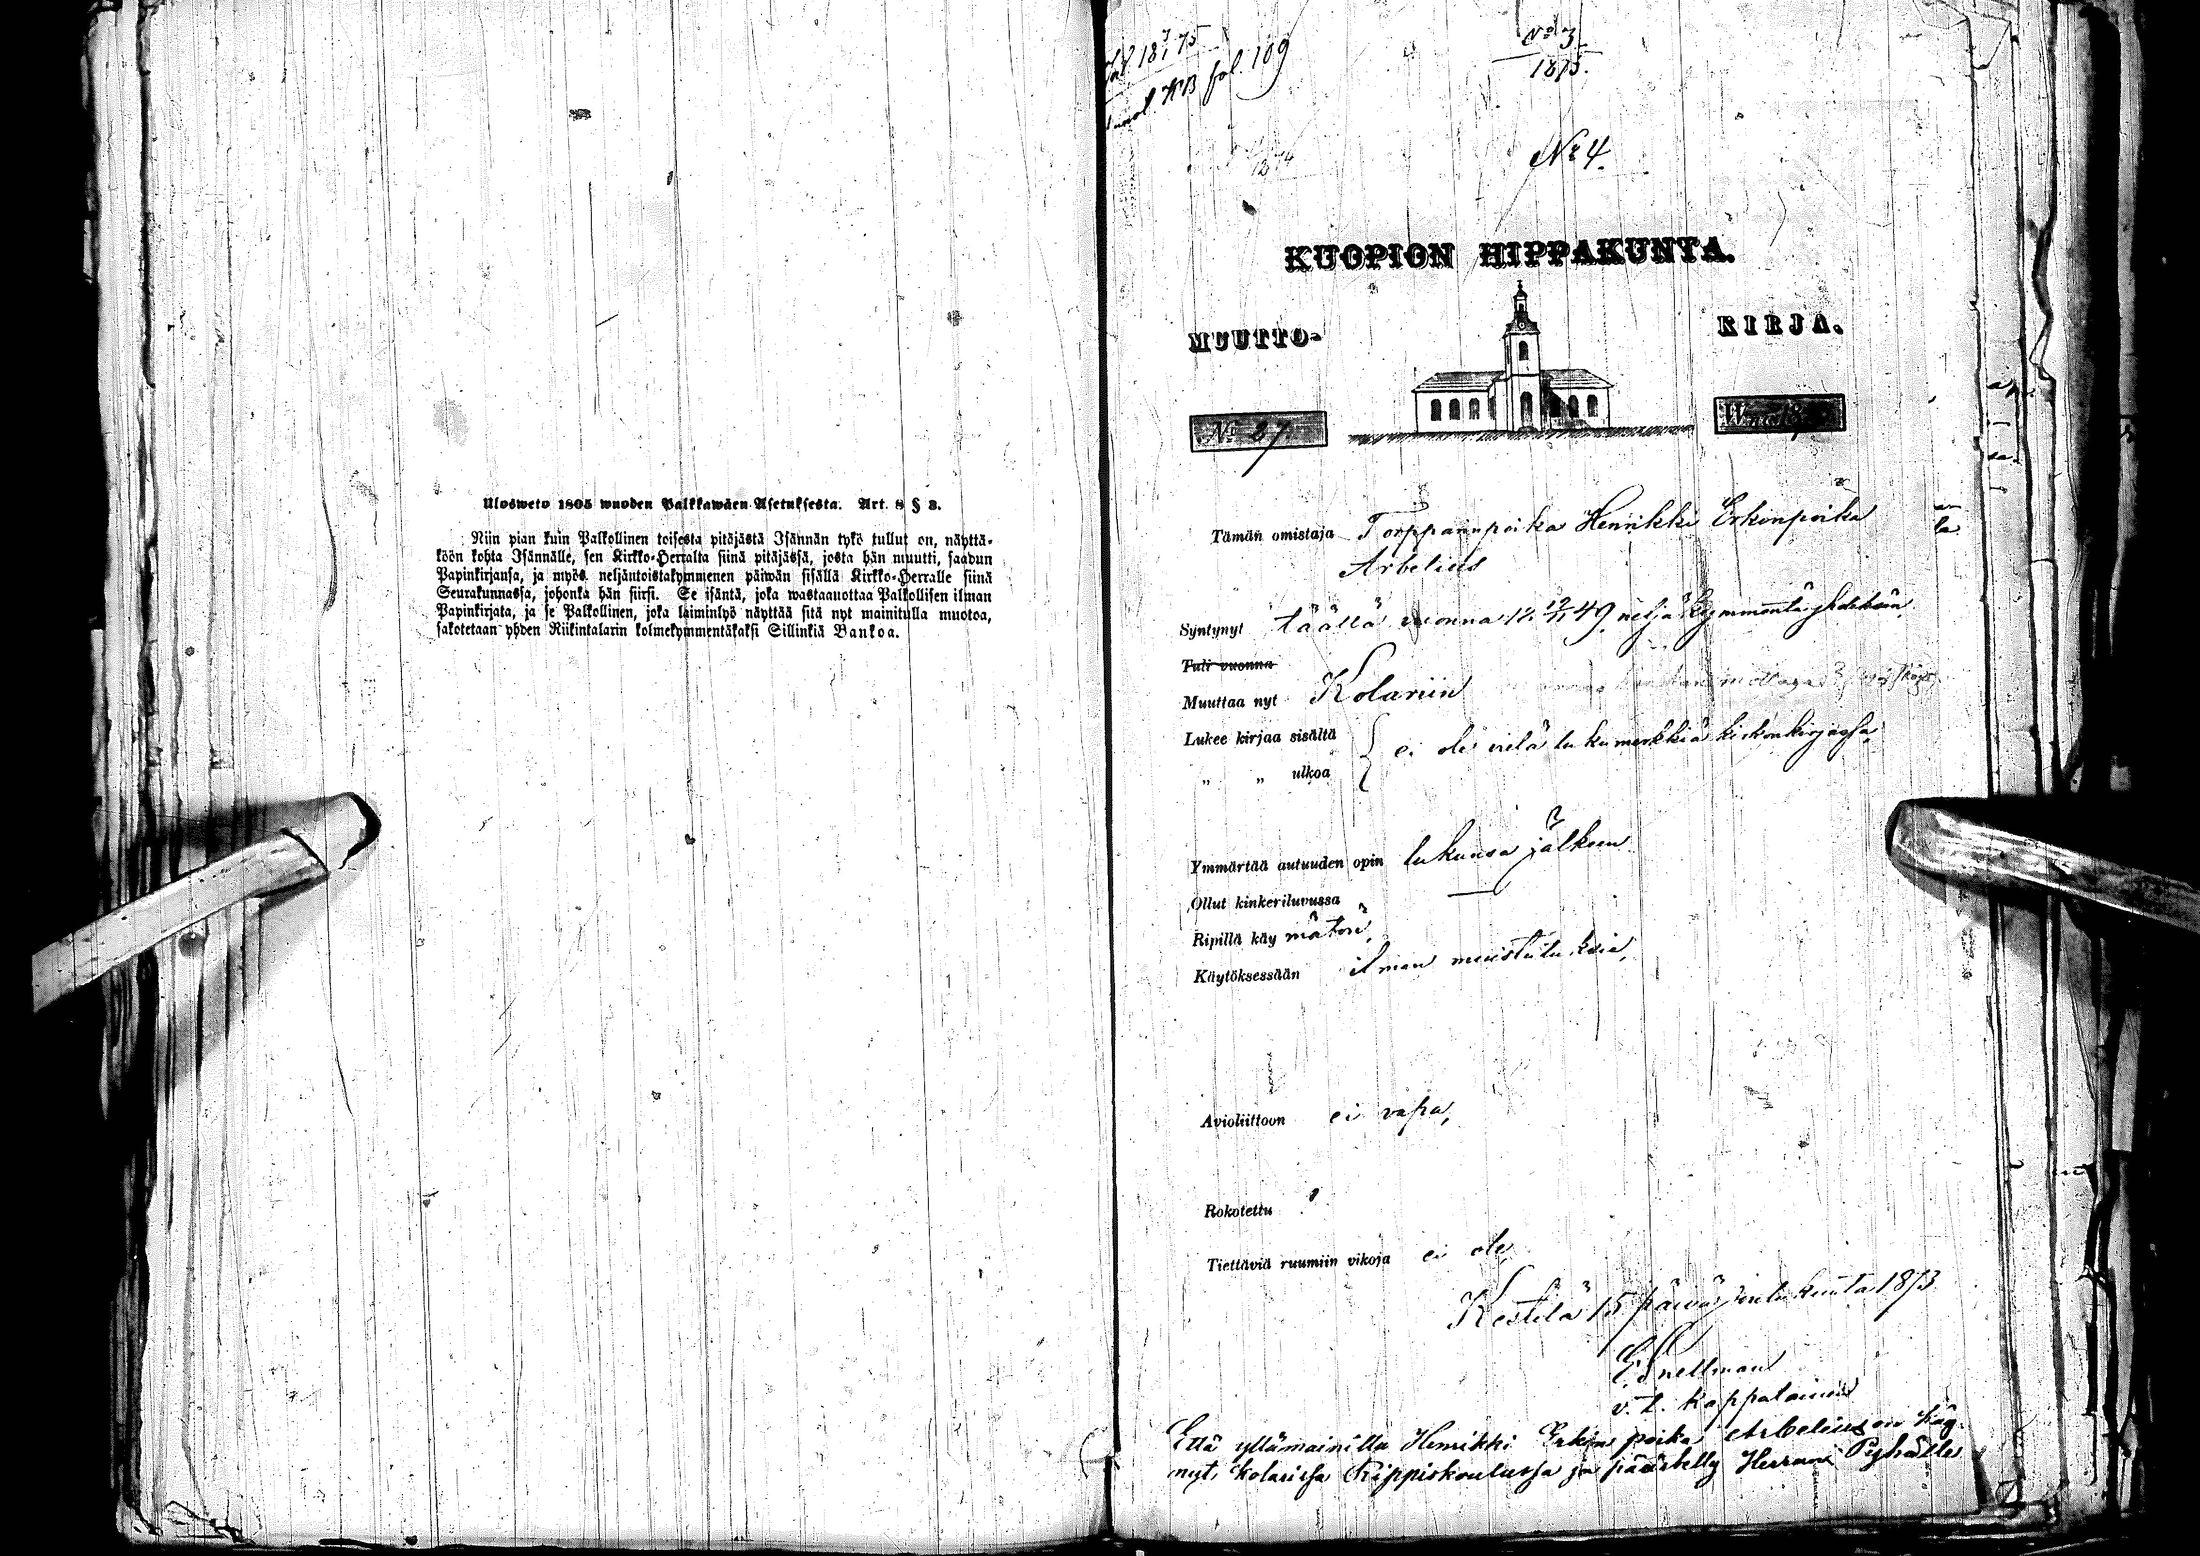 Ulosweto 1805 wuoden Palkkawäen Asetuksesta. Art. 8 § 3.
Niin pian kuin Palkollinen toisesta pitäjästä Isännän tykö tullut on, näyttä-
köön kohta Isännälle, sen Kirkko-Herralta siinä pitäjässä, josta hän muutti, saadun
Papinkirjansa, ja myös neljäntoistakymmenen päiwän sisällä Kirkko-Herralle siinä
Seurakunnassa, johonka hän siirsi. Se isäntä, joka wastaanottaa Palkollisen ilman
Papinkirjata, ja se Palkollinen, joka laiminlyö näyttää sitä nyt mainitulla muotoa,
sakotetaan yhden Riikintalarin kolmekymmentäkaksi Sillinkiä Bankoa.
fol. 109
No 3
1875.
No 4.
KUOPION HIPPAKUNTA.
MUUTTO- KIRJA.
No 27.
Tämän omistaja Torpparinpoika Henrikki Erkinpoika
Arbelius
Syntynyt täällä vuonna 49, neljäkymmentäyhdeksän
Tuli vuonna
Muuttaa nyt Kolariin
Lukee kirjaa sisältä
„ „ ulkoa
ei ole vielä lukumerkkiä kirkonkirjassa,
Ymmärtää autuuden opin lukunsa jälkeen
Ollut kinkeriluvussa —
Ripillä käy
Käytöksessään ilman muistutuksia,
Avioliittoon ei vapa,
Rokotettu
Tiettäviä ruumiin vikoja ei ole,
Kestilä 15 päivä joulukuuta 1873
Snellman
v. t. Kappalainen
Että yllämainittu Henrikki Erkin poika Arbelius on käy-
nyt Kolarissa Rippikoulussa ja päästetty Herran Pyhälle